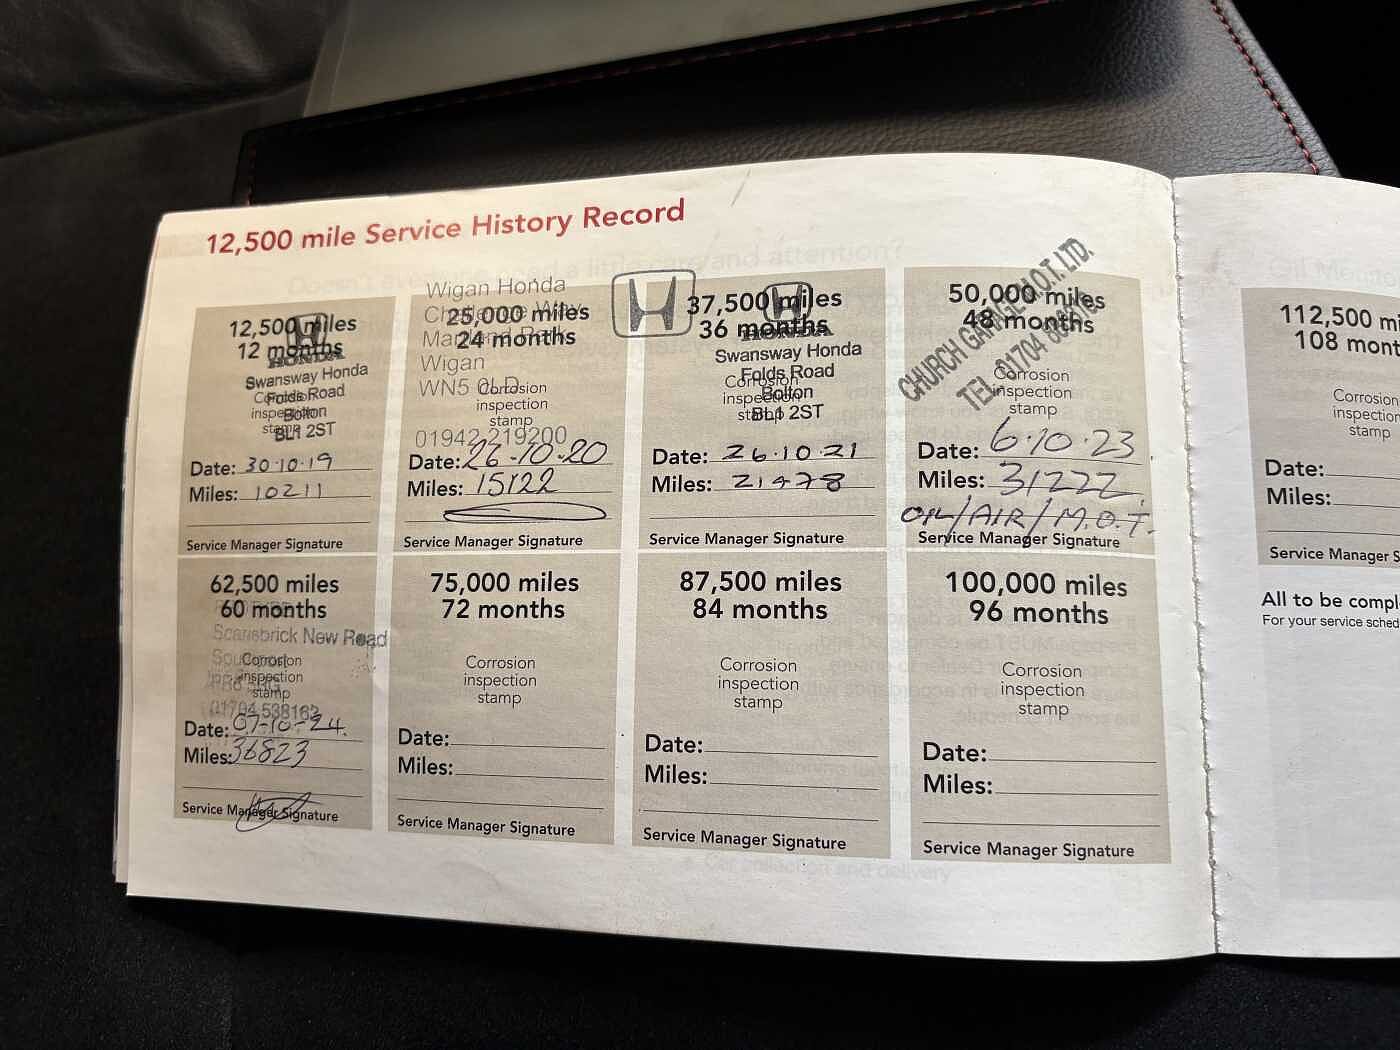 12,500 mile Service History Record
12,500 miles
12 months
HONDA
Swansway Honda
Folds Road
Bolton
BL1 2ST
Corrosion
inspection
stamp
Date: 30·10·19
Miles: 10211
Service Manager Signature
Wigan Honda
25,000 miles
24 months
Wigan
WN5 0LD
Corrosion
inspection
stamp
01942 219200
Date: 26-10-20
Miles: 15122
Service Manager Signature
37,500 miles
36 months
HONDA
Swansway Honda
Folds Road
Bolton
BL1 2ST
Corrosion
inspection
stamp
Date: 26·10·21
Miles: 21478
Service Manager Signature
50,000 miles
48 months
CHURCH GARAGE M.O.T. LTD.
TEL. 01704
Corrosion
inspection
stamp
Date: 6·10·23
Miles: 31222
OIL/AIR/M.O.T.
Service Manager Signature
62,500 miles
60 months
Scarisbrick New Road
Corrosion
inspection
stamp
01704 538163
Date: 07-10-24.
Miles: 36823
Service Manager Signature
75,000 miles
72 months
Corrosion
inspection
stamp
Date:
Miles:
Service Manager Signature
87,500 miles
84 months
Corrosion
inspection
stamp
Date:
Miles:
Service Manager Signature
100,000 miles
96 months
Corrosion
inspection
stamp
Date:
Miles:
Service Manager Signature
112,500 mi
108 mont
Corrosion
inspection
stamp
Date:
Miles:
Service Manager S
All to be compl
For your service sched